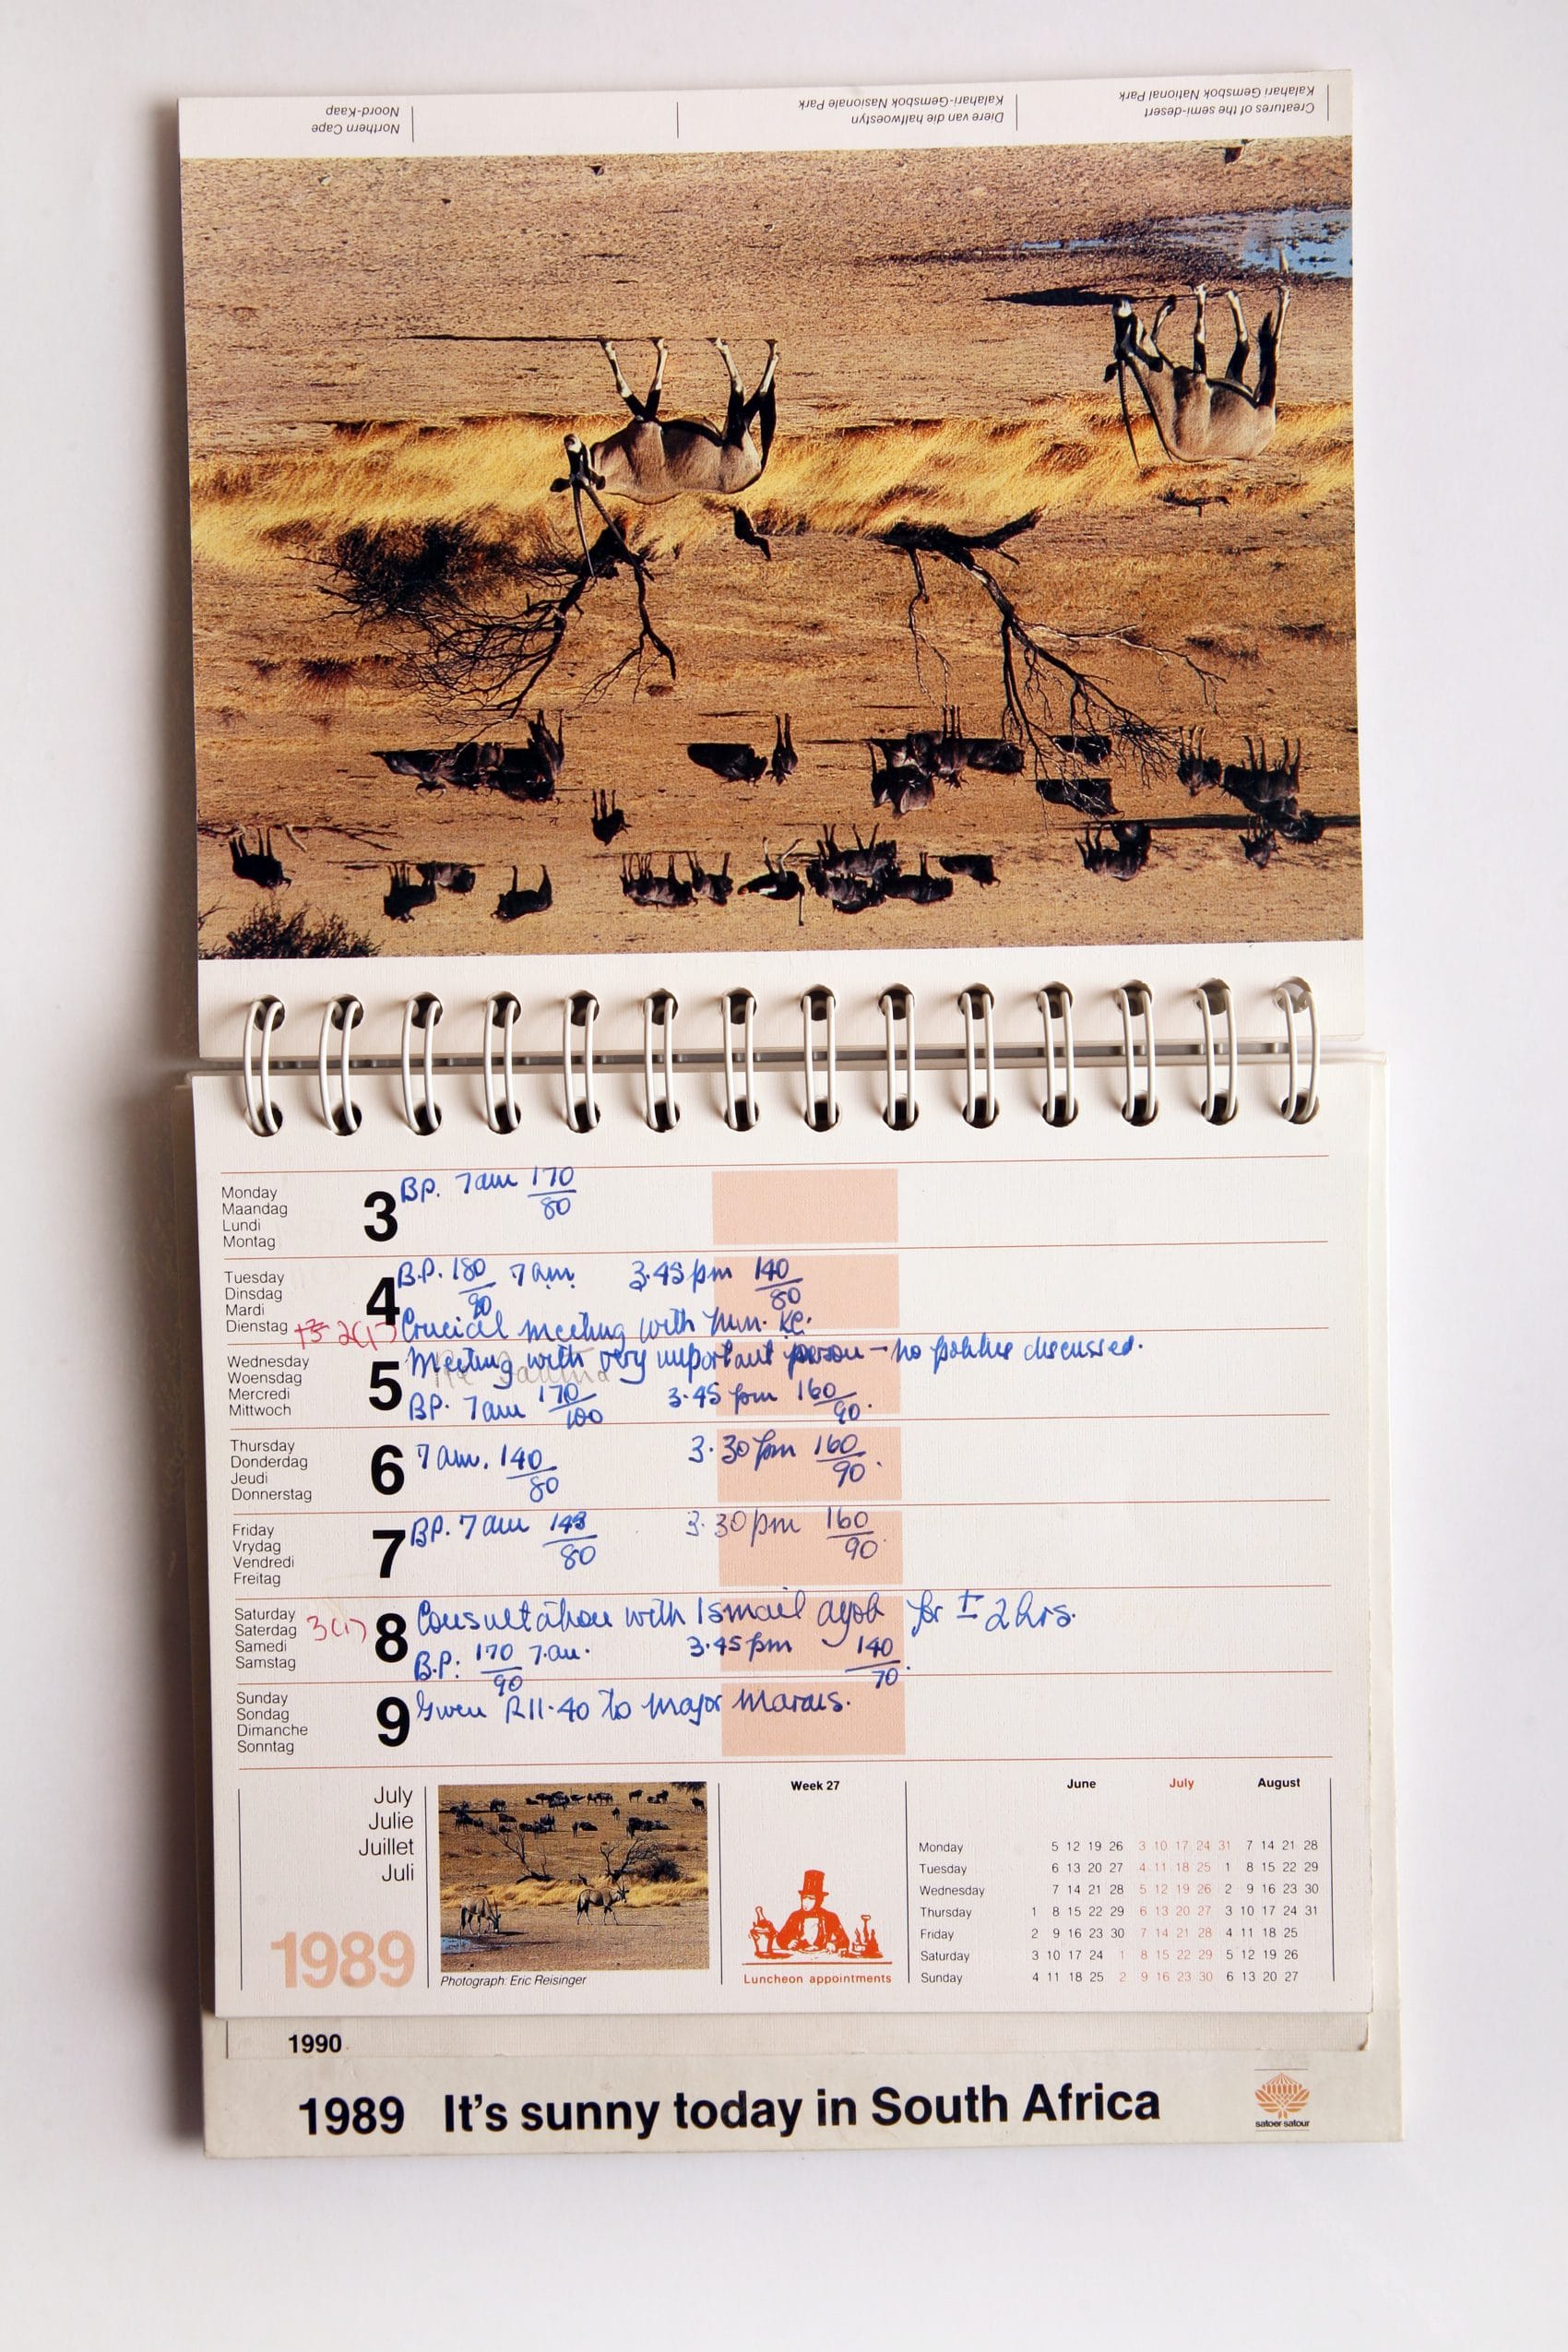 Northern Cape
Noord-Kaap
Diere van die halfwoestyn
Kalahari-Gemsbok Nasionale Park
Creatures of the semi-desert
Kalahari Gemsbok National Park
Monday
Maandag
Lundi
Montag
3
BP. 7am 170/80
Tuesday
Dinsdag
Mardi
Dienstag
4
B.P. 180/90 7am. 3.45pm 140/80
2(1) Crucial meeting with Min. KC.
Wednesday
Woensdag
Mercredi
Mittwoch
5
Meeting with very important person – no politics discussed.
BP. 7am 170/100 3.45pm 160/90.
Thursday
Donderdag
Jeudi
Donnerstag
6
7am. 140/80 3.30pm 160/90.
Friday
Vrydag
Vendredi
Freitag
7
BP. 7am 80 3.30pm 160/90.
Saturday
Saterdag
Samedi
Samstag
3(1)
8
Consultation with Ismail Ayob for ± 2 hrs.
B.P: 170/90 7.am. 3.45pm 140/70.
Sunday
Sondag
Dimanche
Sonntag
9
Given R11.40 to Major Marais.
July
Julie
Juillet
Juli
1989
Photograph: Eric Reisinger
Week 27
Luncheon appointments
June July August
Monday 5 12 19 26 3 10 17 24 31 7 14 21 28
Tuesday 6 13 20 27 4 11 18 25 1 8 15 22 29
Wednesday 7 14 21 28 5 12 19 26 2 9 16 23 30
Thursday 1 8 15 22 29 6 13 20 27 3 10 17 24 31
Friday 2 9 16 23 30 7 14 21 28 4 11 18 25
Saturday 3 10 17 24 1 8 15 22 29 5 12 19 26
Sunday 4 11 18 25 2 9 16 23 30 6 13 20 27
1990
1989 It's sunny today in South Africa
satoer·satour